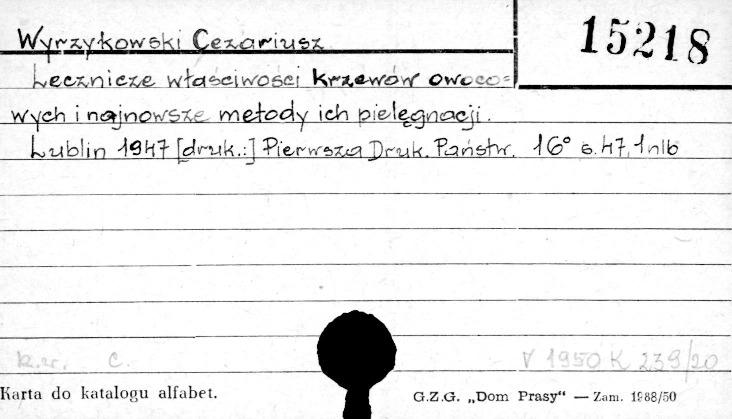 Wyrzykowski Cezariusz
15218
Lecznicze właściwości krzewów owoco=
wych i najnowsze metody ich pielęgnacji.
Lublin 1947 [druk.:] Pierwsza Druk. Państw. 16° s. 47, 1 nlb
k.zr. C. V 1950 K 239/20
Karta do katalogu alfabet. G.Z.G. „Dom Prasy“ — Zam. 1888/50